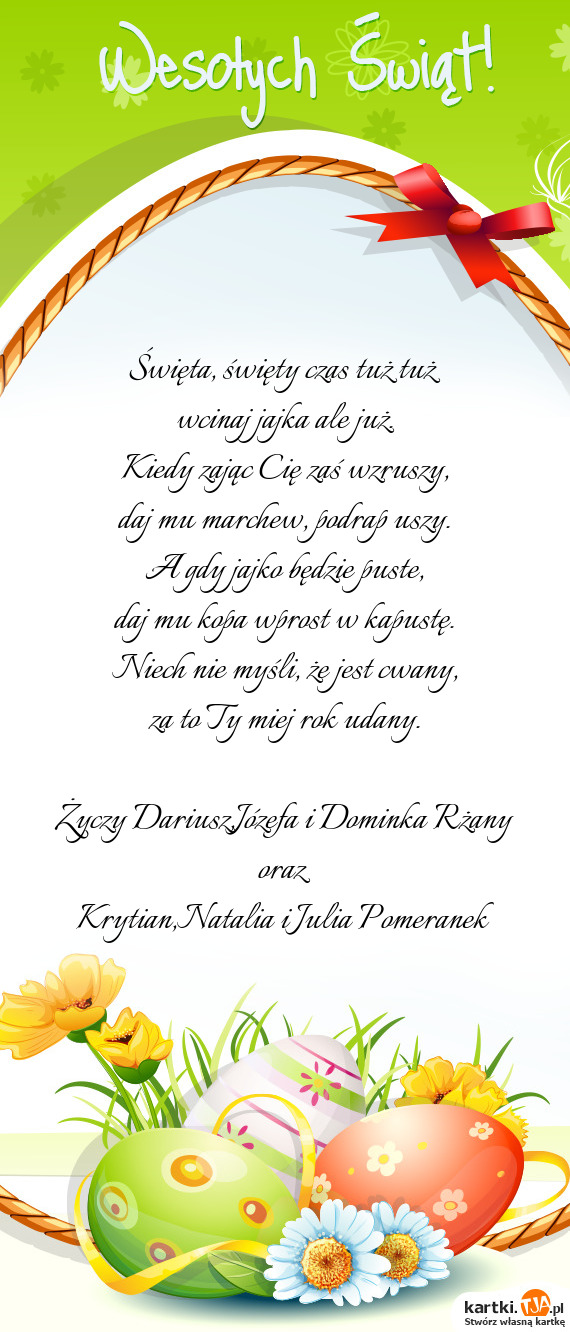 Wesołych Świąt!
Święta, święty czas tuż tuż
wcinaj jajka ale już.
Kiedy zając Cię zaś wzruszy,
daj mu marchew, podrap uszy.
A gdy jajko będzie puste,
daj mu kopa wprost w kapustę.
Niech nie myśli, że jest cwany,
za to Ty miej rok udany.
Życzy Dariusz,Józefa i Dominka Rżany
oraz
Krytian,Natalia i Julia Pomeranek
kartki.TJA.pl
Stwórz własną kartkę